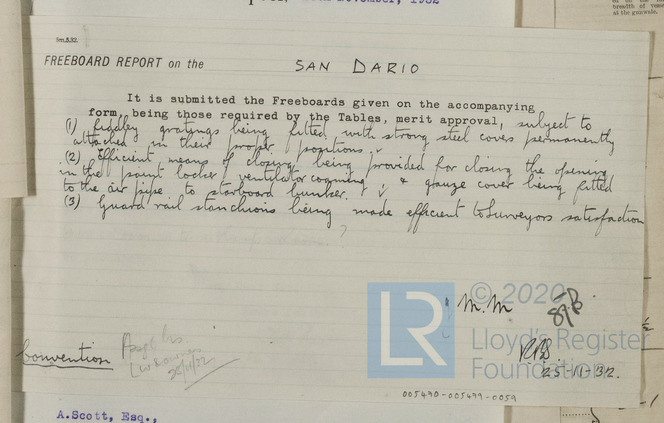 FREEBOARD REPORT on the SAN DARIO
It is submitted the Freeboards given on the accompanying
form, being those required by the Tables, merit approval, subject to
(1) Fiddley gratings being fitted with strong steel covers permanently
attached in their proper positions.
(2) Efficient means of closing being provided for closing the opening
in the paint locker ventilator coaming & gauze cover being fitted
to the air pipe to starboard bunker.
(3) Guard rail stanchions being made efficient to Surveyors satisfaction
M.M
© 2020
LR
Lloyd's Register
Foundation
25-11-32.
Convention
25/11/32
005490-005499-0059
A.Scott, Esq.,